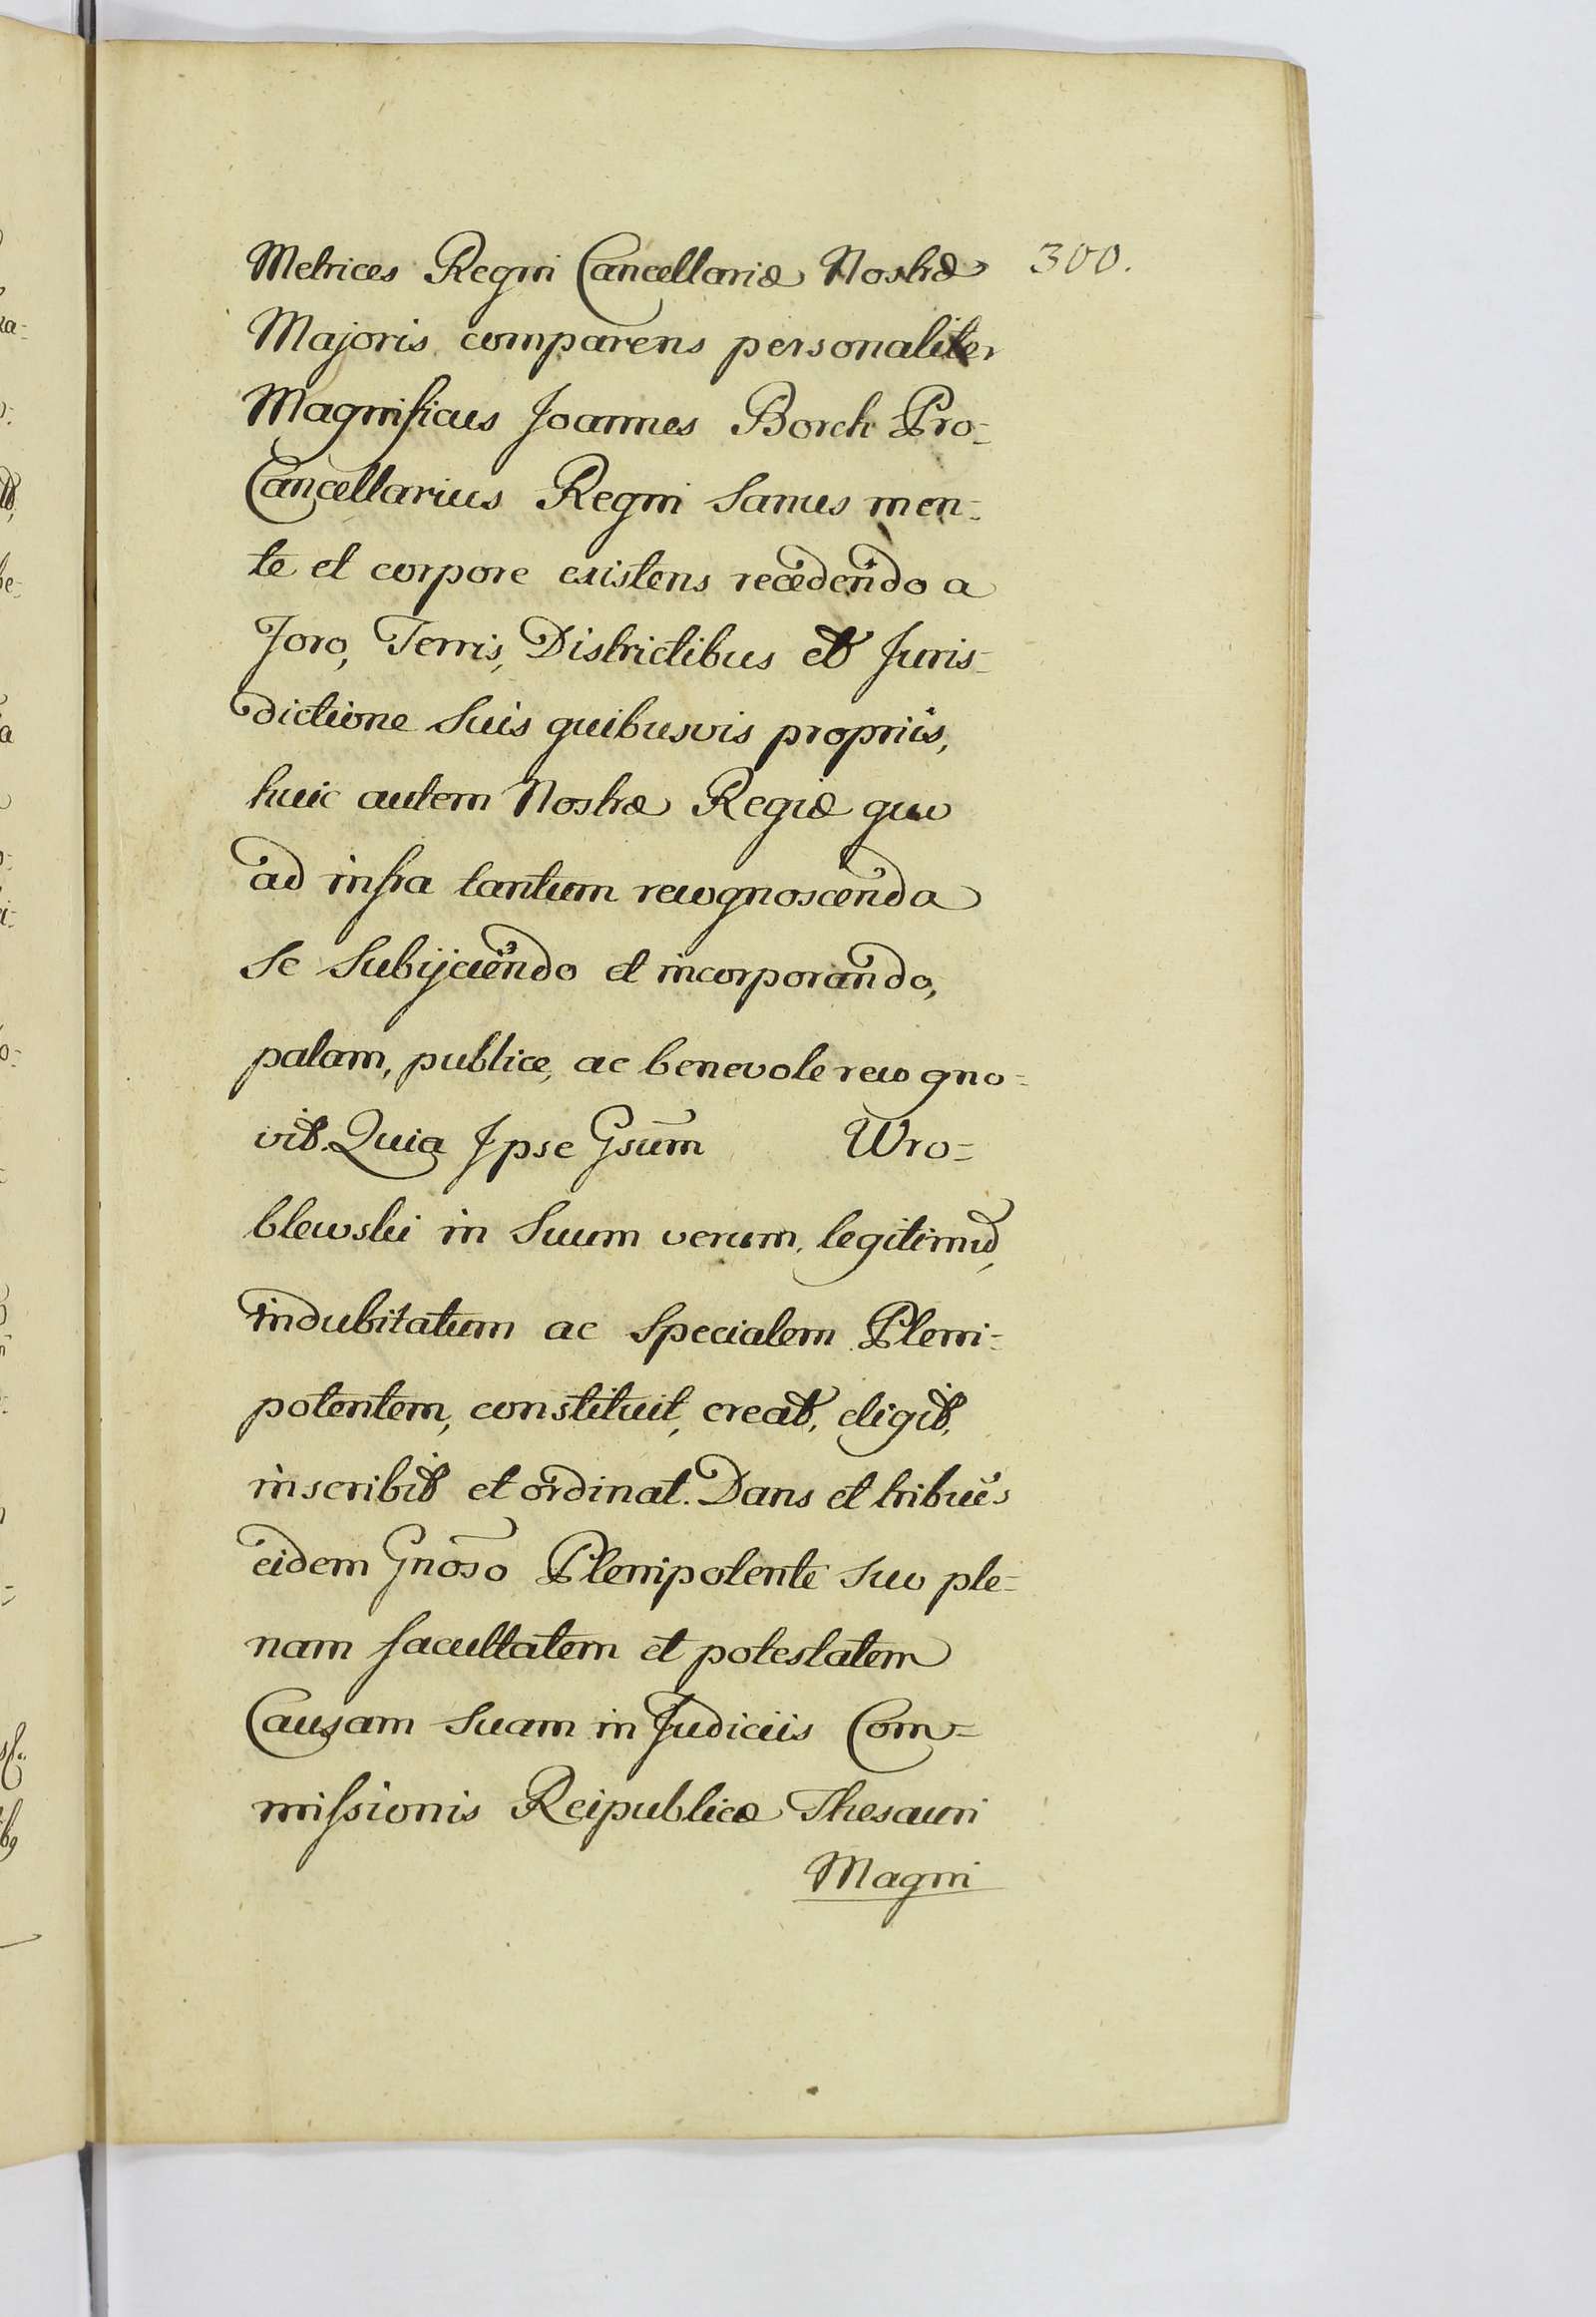 Metrices Regni Cancellariæ Nostræ 300.
Majoris comparens personaliter
Magnificus Joannes Borch Pro=
Cancellarius Regni Sanus men=
te et corpore existens recedendo a
Foro, Terris, Districtibus et Juris=
dictione Suis quibusvis propriis,
huic autem Nostræ Regiæ quo
ad infra tantum recognoscenda
se Subijciendo et incorporando,
palam, publice, ac benevole recogno=
vit. Quia Ipse Gsum̄ Wro=
blewski in Suum verum, legitimũ,
indubitatum ac Specialem Pleni=
potentem, constituit, creat, eligit,
inscribit et ordinat. Dans et tribuẽs
eidem Gnõso Plenipotente Suo ple=
nam facultatem et potestatem
Causam Suam in Judiciis Com=
missionis Reipublicæ Thesauri
Magni